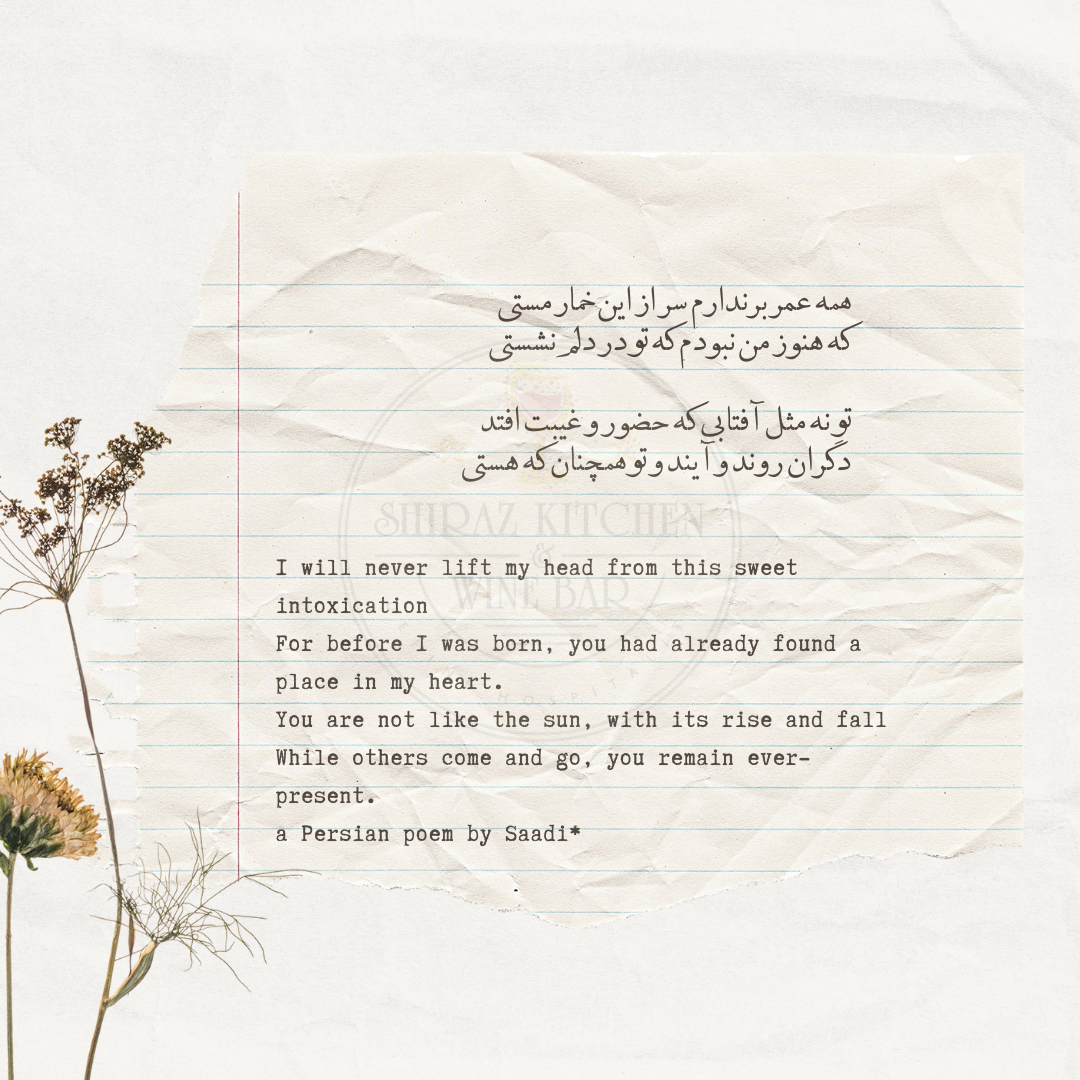 همه عمر برندارم سر از این خمار مستی
که هنوز من نبودم که تو در دلم نشستی
تو نه مثل آفتابی که حضور و غیبت افتد
دگران روند و آیند و تو همچنان که هستی
SHIRAZ KITCHEN
&
WINE BAR
I will never lift my head from this sweet
intoxication
For before I was born, you had already found a
place in my heart.
You are not like the sun, with its rise and fall
While others come and go, you remain ever-
present.
a Persian poem by Saadi*